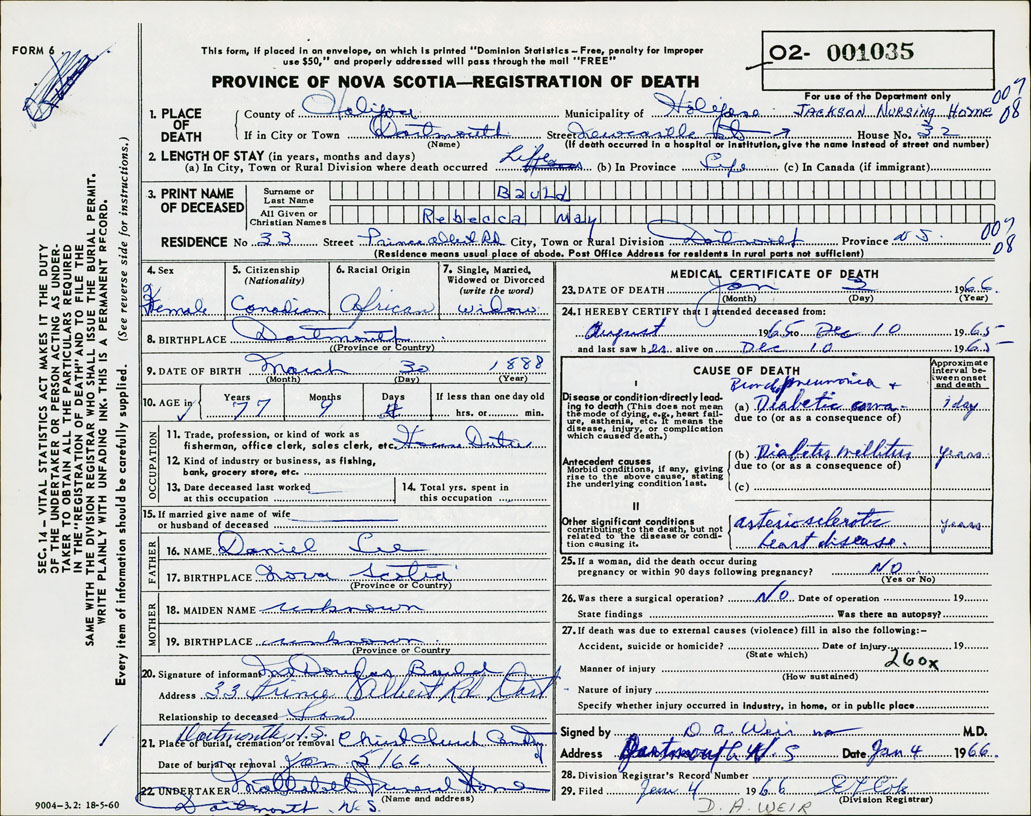 FORM 6
This form, if placed in an envelope, on which is printed "Dominion Statistics – Free, penalty for improper
use $50," and properly addressed will pass through the mail "FREE"
O2- 001035
PROVINCE OF NOVA SCOTIA—REGISTRATION OF DEATH
For use of the Department only
007
08
1. PLACE OF DEATH
County of Halifax Municipality of Halifax JACKSON NURSING HOME
If in City or Town Dartmouth Street Newcastle St House No. 32
(Name) (If death occurred in a hospital or institution, give the name instead of street and number)
2. LENGTH OF STAY (in years, months and days)
(a) In City, Town or Rural Division where death occurred Life (b) In Province Life (c) In Canada (if immigrant)
3. PRINT NAME OF DECEASED
Surname or Last Name Bauld
All Given or Christian Names Rebecca May
RESIDENCE No 33 Street Prince Albert Rd City, Town or Rural Division Dartmouth Province N S.
007
08
(Residence means usual place of abode. Post Office Address for residents in rural parts not sufficient)
4. Sex Female
5. Citizenship (Nationality) Canadian
6. Racial Origin African
7. Single, Married, Widowed or Divorced (write the word) Widow
8. BIRTHPLACE Dartmouth
(Province or Country)
9. DATE OF BIRTH March 30 1888
(Month) (Day) (Year)
10. AGE in Years 77 Months 9 Days If less than one day old
hrs. or min.
OCCUPATION
11. Trade, profession, or kind of work as
fisherman, office clerk, sales clerk, etc. Home Duties
12. Kind of industry or business, as fishing,
bank, grocery store, etc.
13. Date deceased last worked
at this occupation
14. Total yrs. spent in
this occupation
15. If married give name of wife
or husband of deceased
FATHER
16. NAME Daniel Lee
17. BIRTHPLACE Nova Scotia
(Province or Country)
MOTHER
18. MAIDEN NAME unknown
19. BIRTHPLACE unknown
(Province or Country)
20. Signature of informant Douglas Bauld
Address 33 Prince Albert Rd Dart
Relationship to deceased Son
Dartmouth N.S.
21. Place of burial, cremation or removal Christ Church Cemetery
Date of burial or removal Jan 5/66
22. UNDERTAKER Mattatall Funeral Home
(Name and address)
Dartmouth N.S.
9004–3.2: 18-5-60
MEDICAL CERTIFICATE OF DEATH
23. DATE OF DEATH Jan 3 1966
(Month) (Day) (Year)
24. I HEREBY CERTIFY that I attended deceased from:
August 1965 to Dec 10 1965
and last saw her alive on Dec 10 1965
CAUSE OF DEATH
Approximate interval between onset and death
I
Disease or condition directly leading to death (This does not mean the mode of dying, e.g., heart failure, asthenia, etc. It means the disease, injury, or complication which caused death.)
Bronchopneumonia +
(a) Diabetic coma 1 day
due to (or as a consequence of)
Antecedent causes
Morbid conditions, if any, giving rise to the above cause, stating the underlying condition last.
(b) Diabetes mellitus years
due to (or as a consequence of)
(c)
II
Other significant conditions
contributing to the death, but not related to the disease or condition causing it.
arteriosclerotic years
heart disease.
25. If a woman, did the death occur during
pregnancy or within 90 days following pregnancy? NO
(Yes or No)
26. Was there a surgical operation? NO Date of operation 19
State findings Was there an autopsy?
27. If death was due to external causes (violence) fill in also the following:–
Accident, suicide or homicide? Date of injury 19
(State which)
260x
Manner of injury
(How sustained)
Nature of injury
Specify whether injury occurred in industry, in home, or in public place
Signed by D. A. Weir M.D.
Address Dartmouth N. S Date Jan 4 1966
28. Division Registrar's Record Number
29. Filed Jan 4 1966
(Division Registrar)
D. A. WEIR
SEC. 14 – VITAL STATISTICS ACT MAKES IT THE DUTY
OF THE UNDERTAKER OR PERSON ACTING AS UNDER-
TAKER TO OBTAIN ALL THE PARTICULARS REQUIRED
IN THE "REGISTRATION OF DEATH" AND TO FILE THE
SAME WITH THE DIVISION REGISTRAR WHO SHALL ISSUE THE BURIAL PERMIT.
WRITE PLAINLY WITH UNFADING INK. THIS IS A PERMANENT RECORD.
Every item of information should be carefully supplied. (See reverse side for instructions.)